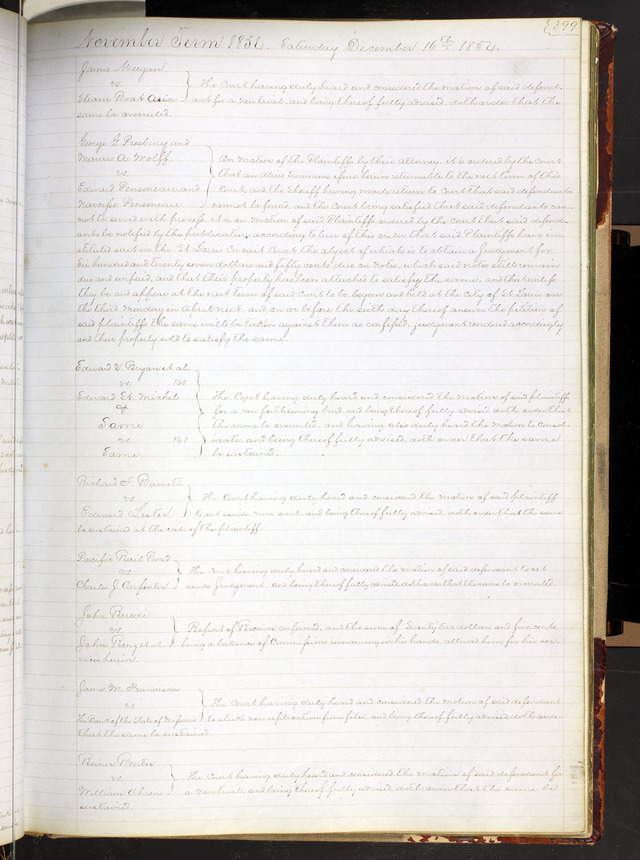 399
November Term 1854. Saturday December 16th 1854.
James Meegan
vs
Steam Boat Asia
The Court having duly heard and considered the motion of said defend-
ant for a new trial, and being thereof fully advised, doth order that the
same be overruled.
George G. Presbury and
Marcus A. Wolff
vs
Edward Pensoneau and
Narcisse Pensoneau
On motion of the Plaintiffs by their attorney, it is ordered by the Court
that an alias Summons issue herein returnable to the next term of this
Court, and the Sheriff having made return to Court that said defendants
cannot be found, and the Court being satisfied that said defendants can-
not be served with process, it is on motion of said Plaintiffs ordered by the Court that said defend-
ants be notified by this publication, according to law of this order that said Plaintiffs have in-
stituted suit in the St Louis Circuit Court the object of which is to obtain a Judgment for
Six hundred and twenty seven dollars and fifty cents due on notes, which said notes still remain
due and unpaid, and that their property has been attached to satisfy the same, and that unless
they be and appear at the next term of said Court to be begun and held at the City of St Louis on
the third Monday in April next, and on or before the sixth day thereof answer the petition of
said plaintiffs the same will be taken against them as confessed, judgment rendered accordingly
and their property sold to satisfy the same.
Edward V. Bryan et al.
vs 160
Edward St. Michel
&
Same
vs 161
Same
The Court having duly heard and considered the motion of said plaintiff
for a new forthcoming bond and being thereof fully advised doth order that
the same be overruled, and having also duly heard the motion to consol-
idate, and being thereof fully advised, doth order that the same
be sustained.
Richard F. Barrett
vs
Edward Lester
The Court having duly heard and considered the motion of said plaintiff
to set aside non suit, and being thereof fully advised, doth order that the same
be sustained at the cost of the plaintiff.
Pacific Rail Road
vs
Charles J. Carpenter
The Court having duly heard and considered the motion of said defendant to set
aside Judgment, and being thereof fully advised, doth order that the same be overruled.
John
vs
John et al
Report of Receiver confirmed, and the sum of Seventy two dollars and five cents
being a balance of Commissions remaining in his hands allowed him for his ser-
vices herein.
James M. Franciscus
vs
The Bank of the State of Missouri
The Court having duly heard and considered the motion of said defendant
to strike new replication from files, and being thereof fully advised doth order
that the same be sustained.
vs
William Ahrens
The Court having duly heard and considered the motion of said defendant for
a new trial, and being thereof fully advised, doth order that the same be
sustained.